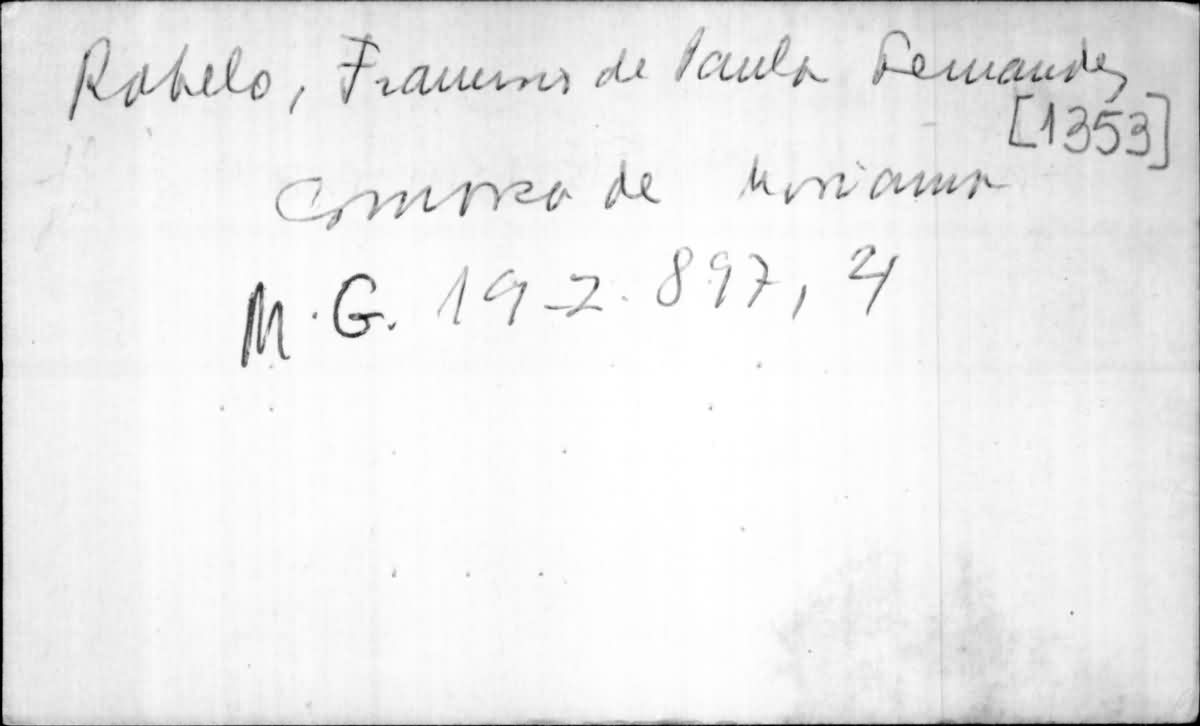 Rabelo, Francisco de Paula Fernandes
[1353]
Comarca de Mariana
M. G. 19-2-897, 4